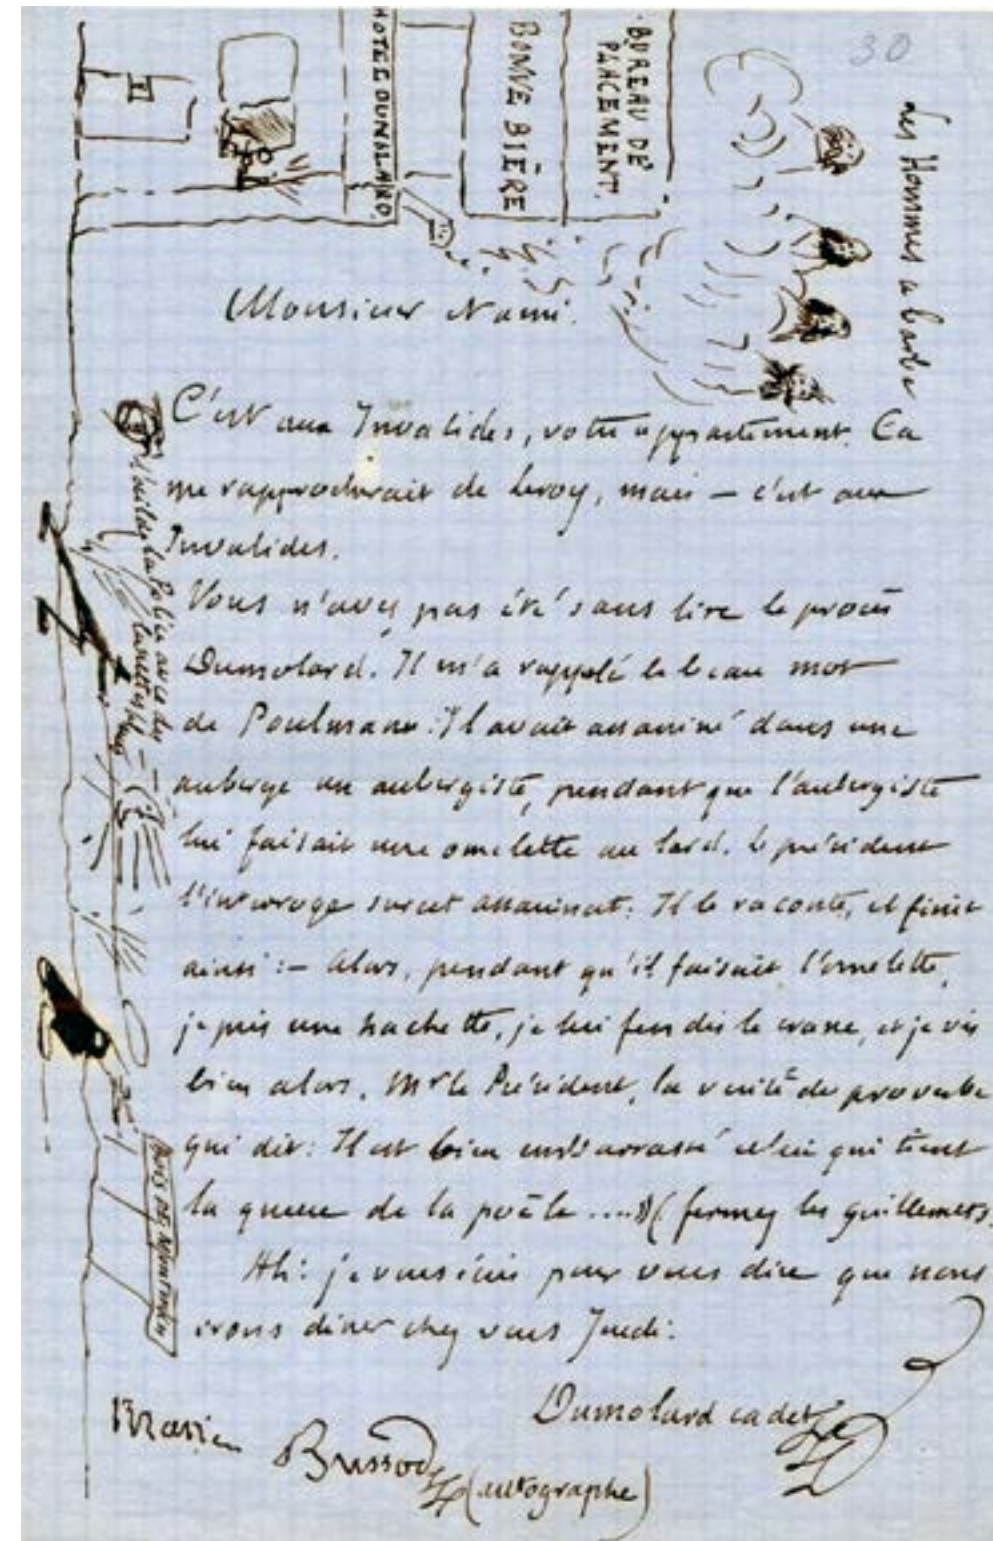 30
HOTEL DUNALAIRD
BONNE BIÈRE
BUREAU DE
PLACEMENT.
Les Hommes a barbe
Monsieur Nami.
C'est aux Invalides, votre appartement. Ca
me rapprocherait de Leroy, mais – c'est aux
Invalides.
Vous n'avez pas été sans lire le procès
Dumolard. Il m'a rappelé le beau mot
de Poulmann. Il avait assassiné dans une
auberge un aubergiste, pendant que l'aubergiste
lui faisait une omelette au lard. le président
l'interroge sur cet assassinat: Il le raconte, et finit
ainsi :– Alors, pendant qu'il faisait l'omelette,
je pris une hachette, je lui fendis le crane, et je vis
bien alors, Mr le Président, la vérité du proverbe
qui dit: Il est bien embarrassé celui qui tient
la queue de la poële ....» (fermez les guillemets.
Ah! je vous écris pour vous dire que nous
irons diner chez vous Jeudi.
Dumolard cadet
l'œil de la Police avec des
lunettes bleues
Marie
Bussod
(autographe)